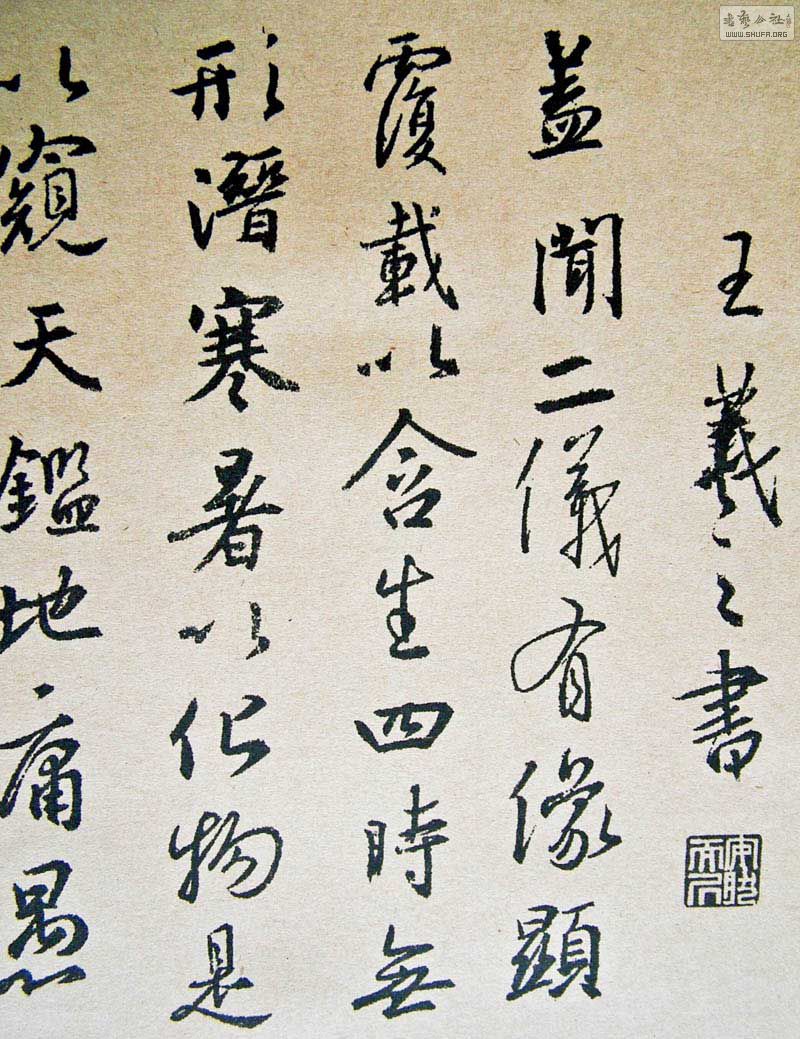 王羲之書
蓋聞二儀有像顯
覆載以含生四時無
形潛寒暑以化物是
以窺天鑑地庸愚
WWW.SHUFA.ORG